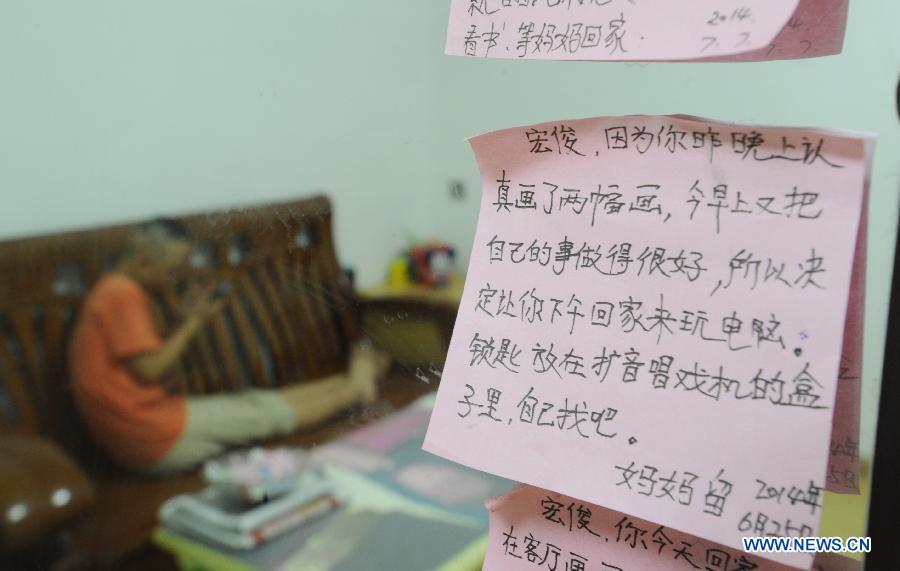 看书、等妈妈回家.
2014.
7. 7.
宏俊，因为你昨晚上认
真画了两幅画，今早上又把
自己的事做得很好，所以决
定让你下午回家来玩电脑。
锁匙放在扩音唱戏机的盒
子里，自己找吧。
妈妈留 2014年
6月25日
宏俊，你今天回家
在客厅画
WWW.NEWS.CN